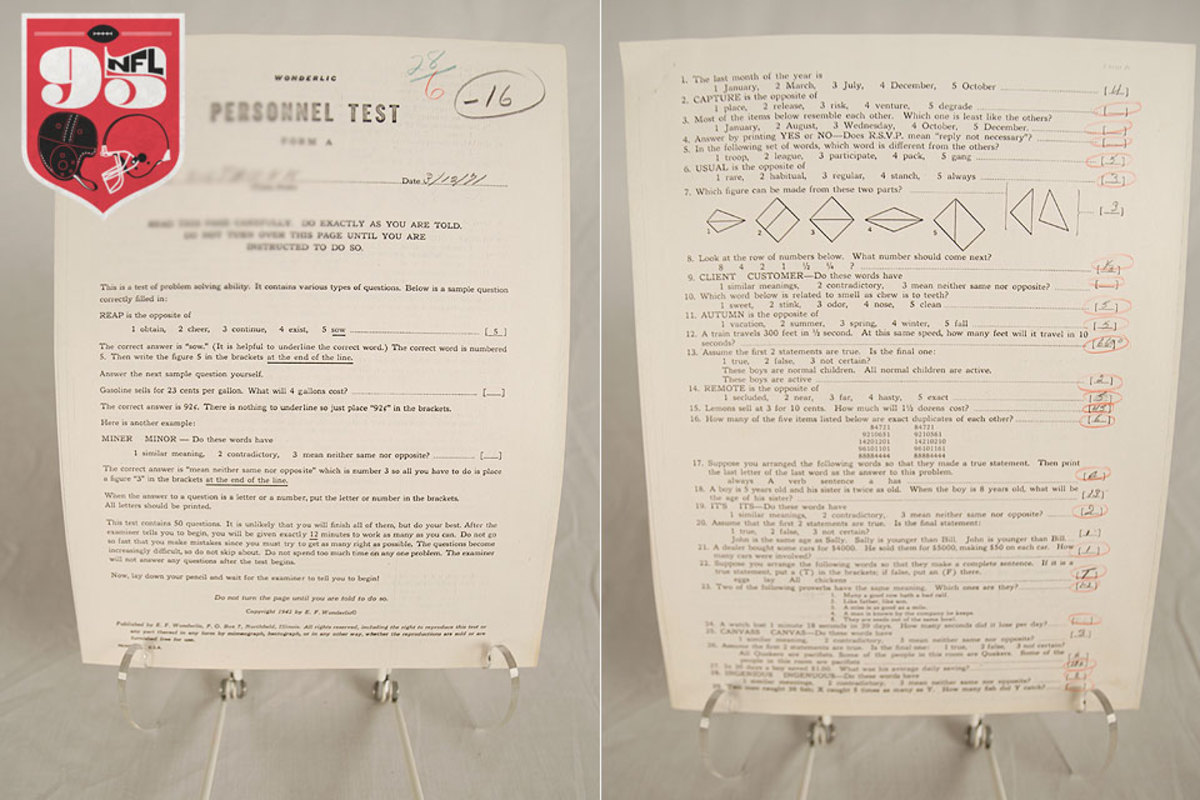 95
NFL
WONDERLIC
28
6
-16
PERSONNEL TEST
FORM A
Date 3/12/71
READ THIS PAGE CAREFULLY. DO EXACTLY AS YOU ARE TOLD.
DO NOT TURN OVER THIS PAGE UNTIL YOU ARE
INSTRUCTED TO DO SO.
This is a test of problem solving ability. It contains various types of questions. Below is a sample question
correctly filled in:
REAP is the opposite of
1 obtain, 2 cheer, 3 continue, 4 exist, 5 sow [ 5 ]
The correct answer is "sow." (It is helpful to underline the correct word.) The correct word is numbered
5. Then write the figure 5 in the brackets at the end of the line.
Answer the next sample question yourself.
Gasoline sells for 23 cents per gallon. What will 4 gallons cost? [ ]
The correct answer is 92¢. There is nothing to underline so just place "92¢" in the brackets.
Here is another example:
MINER MINOR — Do these words have
1 similar meaning, 2 contradictory, 3 mean neither same nor opposite? [ ]
The correct answer is "mean neither same nor opposite" which is number 3 so all you have to do is place
a figure "3" in the brackets at the end of the line.
When the answer to a question is a letter or a number, put the letter or number in the brackets.
All letters should be printed.
This test contains 50 questions. It is unlikely that you will finish all of them, but do your best. After the
examiner tells you to begin, you will be given exactly 12 minutes to work as many as you can. Do not go
so fast that you make mistakes since you must try to get as many right as possible. The questions become
increasingly difficult, so do not skip about. Do not spend too much time on any one problem. The examiner
will not answer any questions after the test begins.
Now, lay down your pencil and wait for the examiner to tell you to begin!
Do not turn the page until you are told to do so.
Copyright 1942 by E. F. Wonderlic©
Published by E. F. Wonderlic, P. O. Box 7, Northfield, Illinois. All rights reserved, including the right to reproduce this test or
any part thereof in any form by mimeograph, hectograph, or in any other way, whether the reproductions are sold or are
furnished free for use.
U.S.A.
1. The last month of the year is
1 January, 2 March, 3 July, 4 December, 5 October [ 4 ]
2. CAPTURE is the opposite of
1 place, 2 release, 3 risk, 4 venture, 5 degrade [ ]
3. Most of the items below resemble each other. Which one is least like the others?
1 January, 2 August, 3 Wednesday, 4 October, 5 December. [ ]
4. Answer by printing YES or NO—Does R.S.V.P. mean "reply not necessary"? [ ]
5. In the following set of words, which word is different from the others?
1 troop, 2 league, 3 participate, 4 pack, 5 gang [ 5 ]
6. USUAL is the opposite of
1 rare, 2 habitual, 3 regular, 4 stanch, 5 always [ 3 ]
7. Which figure can be made from these two parts? [ 3 ]
1 2 3 4 5
8. Look at the row of numbers below. What number should come next?
8 4 2 1 ½ ¼ ?
9. CLIENT CUSTOMER—Do these words have
1 similar meanings, 2 contradictory, 3 mean neither same nor opposite? [ ]
10. Which word below is related to smell as chew is to teeth?
1 sweet, 2 stink, 3 odor, 4 nose, 5 clean [ 5 ]
11. AUTUMN is the opposite of
1 vacation, 2 summer, 3 spring, 4 winter, 5 fall [ 5 ]
12. A train travels 300 feet in ⅓ second. At this same speed, how many feet will it travel in 10
seconds?
13. Assume the first 2 statements are true. Is the final one:
1 true, 2 false, 3 not certain?
These boys are normal children. All normal children are active.
These boys are active [ 2 ]
14. REMOTE is the opposite of
1 secluded, 2 near, 3 far, 4 hasty, 5 exact [ 5 ]
15. Lemons sell at 3 for 10 cents. How much will 1½ dozens cost? [ 45 ]
16. How many of the five items listed below are exact duplicates of each other?
84721 84721
9210651 9210561
14201201 14210210
96101101 96101161
88884444 88884444
17. Suppose you arranged the following words so that they made a true statement. Then print
the last letter of the last word as the answer to this problem.
always A verb sentence a has
18. A boy is 5 years old and his sister is twice as old. When the boy is 8 years old, what will be
the age of his sister? [ 13 ]
19. IT'S ITS—Do these words have
1 similar meanings, 2 contradictory, 3 mean neither same nor opposite? [ 2 ]
20. Assume that the first 2 statements are true. Is the final statement:
1 true, 2 false, 3 not certain?
John is the same age as Sally. Sally is younger than Bill. John is younger than Bill. [ 1 ]
21. A dealer bought some cars for $4000. He sold them for $5000, making $50 on each car. How
many cars were involved? [ 1 ]
22. Suppose you arrange the following words so that they make a complete sentence. If it is a
true statement, put a (T) in the brackets; if false, put an (F) there.
eggs lay All chickens [ T ]
23. Two of the following proverbs have the same meaning. Which ones are they?
1. Many a good cow hath a bad calf.
2. Like father, like son.
3. A miss is as good as a mile.
4. A man is known by the company he keeps.
5. They are seeds out of the same bowl.
24. A watch lost 1 minute 18 seconds in 39 days. How many seconds did it lose per day? [ ]
25. CANVASS CANVAS—Do these words have
1 similar meaning, 2 contradictory, 3 mean neither same nor opposite? [ 2 ]
26. Assume the first 2 statements are true. Is the final one: 1 true, 2 false, 3 not certain?
All Quakers are pacifists. Some of the people in this room are Quakers. Some of the
people in this room are pacifists
27. In 30 days a boy saved $1.00. What was his average daily saving?
28. INGENIOUS INGENUOUS—Do these words have
1 similar meanings, 2 contradictory, 3 mean neither same nor opposite?
29. Two men caught 36 fish; X caught 5 times as many as Y. How many fish did Y catch?